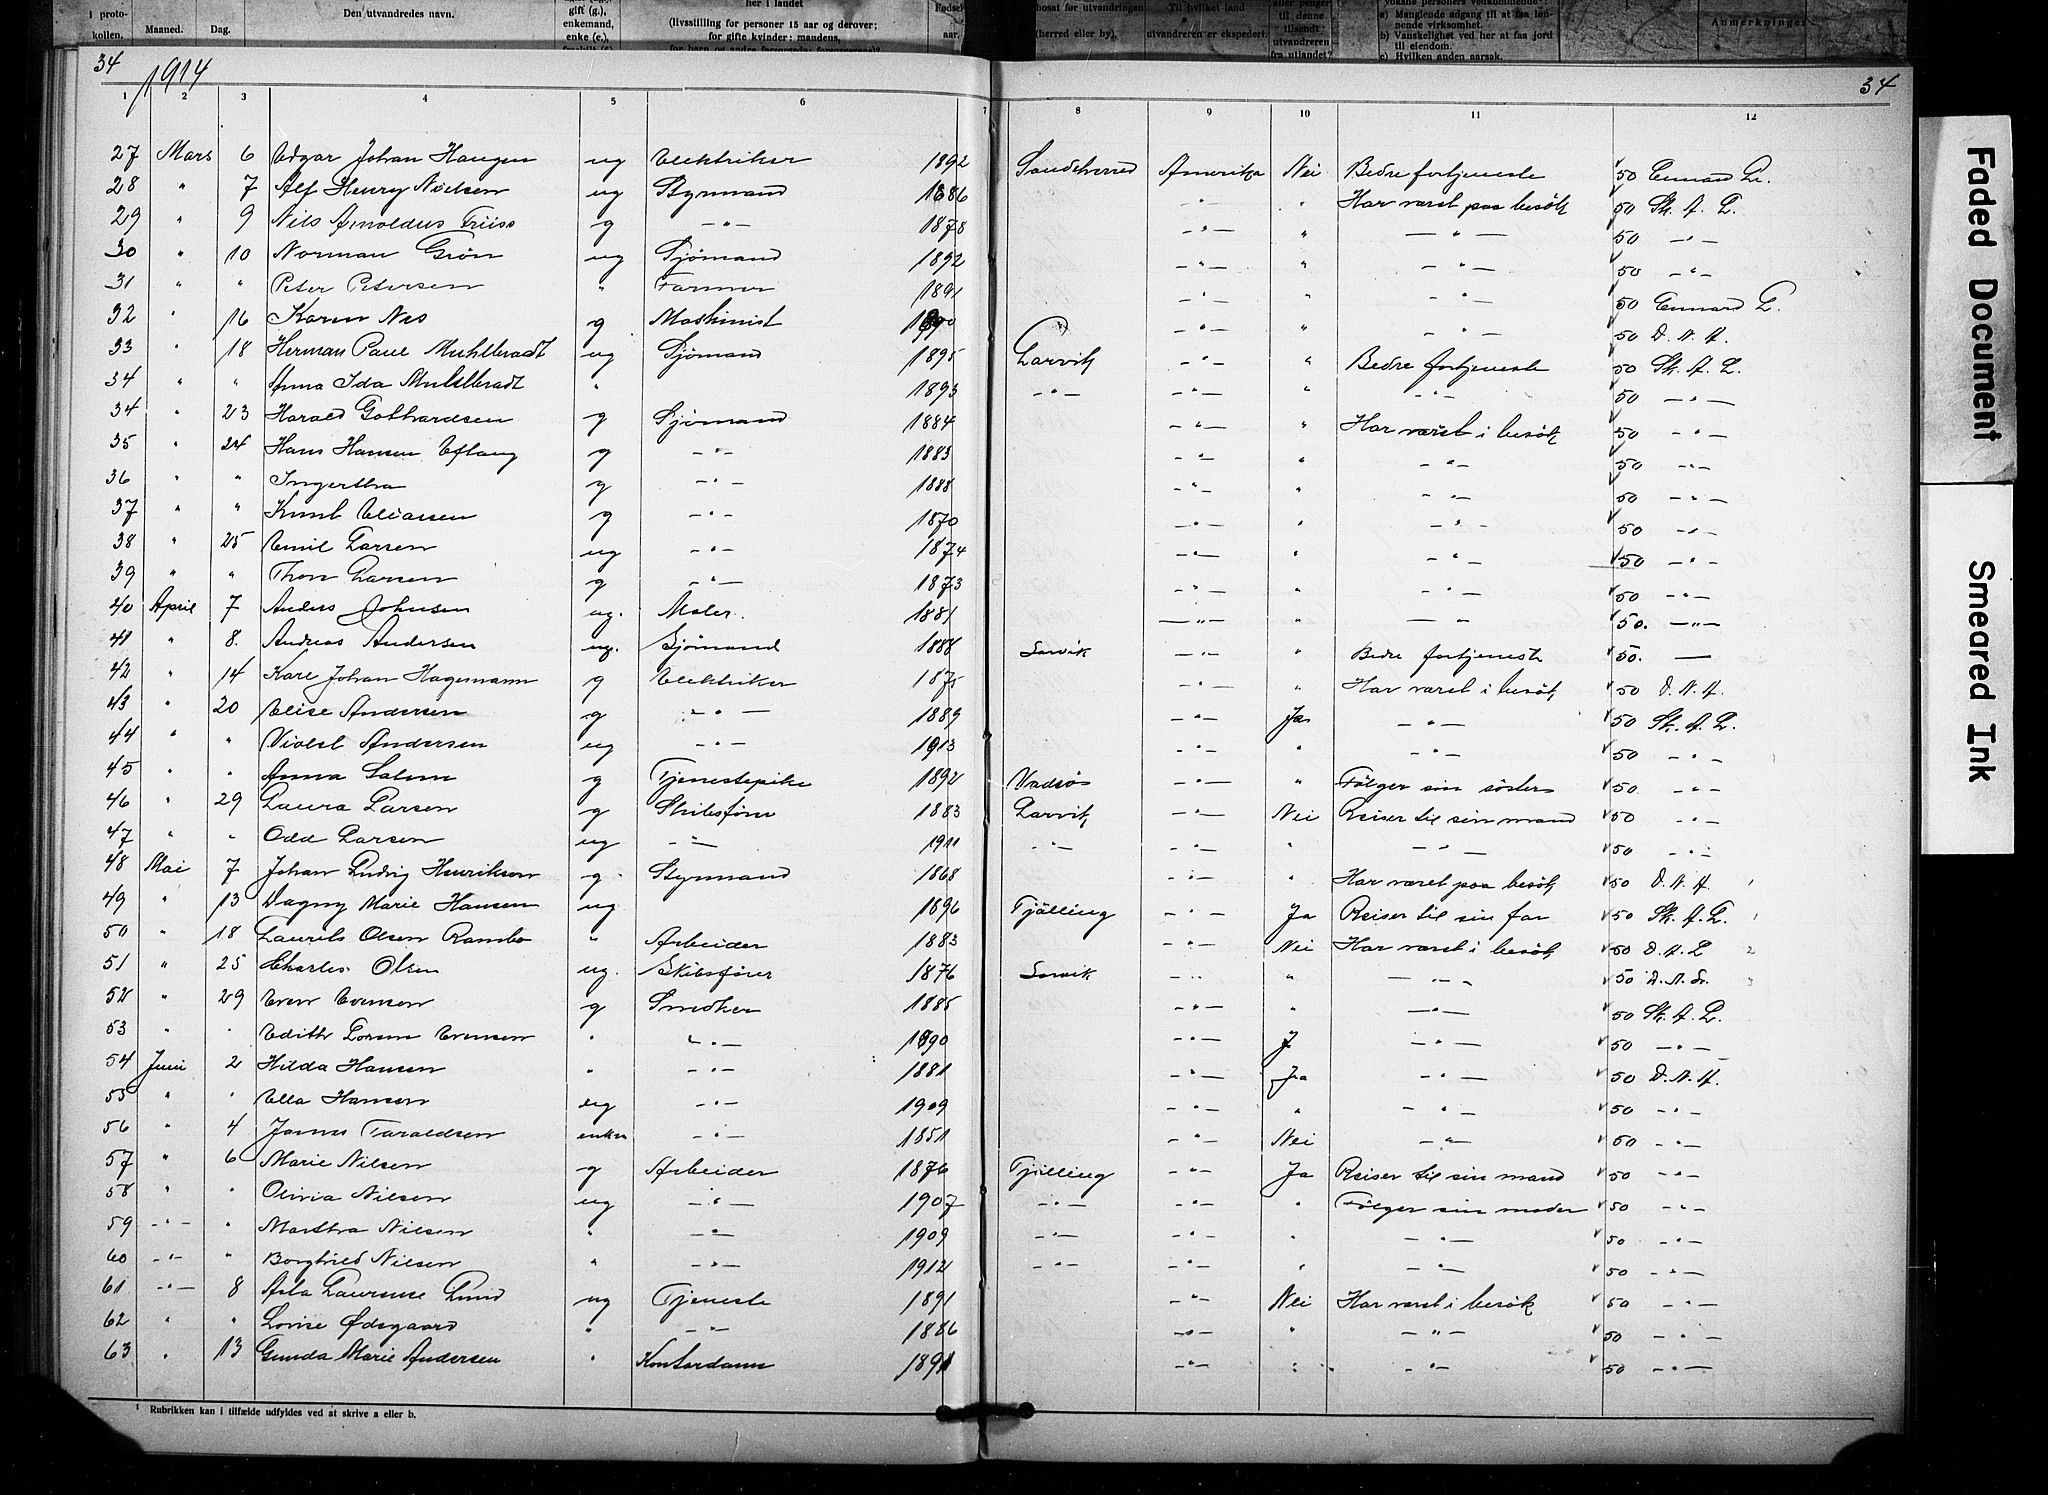 i proto-
kollen. Maaned. Dag. Den utvandredes navn. gift (g.), enkemand, enke (e.), her i landet (livsstilling for personer 15 aar og derover; for gifte kvinder: mandens, Fødsels- aar. bosat før utvandringen (herred eller by). Til hvilket land utvandreren er ekspedert. eller penger til denne tilsendt utvandreren fra utlandet? a) Manglende adgang til at faa løn-
nende virksomhet.
b) Vanskelighet ved her at faa jord
til eiendom.
c) Hvilken anden aarsak. Anmerkninger.
34 1914 34
1 2 3 4 5 6 7 8 9 10 11 12
27 Mars 6 Edgar Johan Haugen ug Elektriker 1892 Sandeherred Amerika Nei Bedre fortjeneste 50 Cunard L.
28 " 7 Alf Henry Nielsen ug Styrmand 1886 -"- " Har været paa besök 50 Sk. A. L.
29 " 9 Nils Arnoldus Friiss g -"- 1878 -"- " -"- 50 -"-
30 " 10 Norman Grön ug Sjömand 1892 -"- " -"- 50 -"-
31 " " Peter Petersen " Farmer 1891 -"- " -"- 50 Cunard L.
32 " 16 Karen Nes g Maskinist 1890 -"- " -"- 50 D. N. A.
33 " 18 Herman Paul Muhlbradt ug Sjömand 1895 Larvik -"- " Bedre fortjeneste 50 Sk. A. L.
34 " " Anna Ida Muhlbradt " 1893 -"- -"- " -"- 50 -"-
34 " 23 Harald Gothardsen g Sjömand 1884 -"- " Har været i besök 50 -"-
35 " 24 Hans Hansen Eftang g -"- 1883 -"- " -"- 50 -"-
36 " " Ingertha g -"- 1888 -"- " -"- 50 -"-
37 " " Knut Eliassen g -"- 1870 -"- " -"- 50 -"-
38 " 25 Emil Larsen ug -"- 1874 -"- " -"- 50 -"-
39 " " Thon Larsen g -"- 1873 -"- " -"- 50 -"-
40 April 7 Anders Johnsen ug. Maler. 1881 -"- " -"- 50. -"-
41 " 8. Andreas Andersen ug. Sjömand 1888 Larvik -"- " Bedre fortjeneste 50. —
42 " 14 Karl Johan Hagemann g Elektriker 1875 -"- " Har været i besök 50 D. N. A.
43 " 20 Elise Andersen g -"- 1889 -"- Ja -"- 50 Sk. A. L.
44 " " Violet Andersen ug -"- 1913 -"- " -"- 50 -"-
45 " " Anna Salem g Tjenestepike 1892 Vadsö -"- " Fölger sin söster 50 -"-
46 " 29 Laura Larsen g Skibsförer 1883 Larvik -"- Nei Reiser til sin mand 50 -"-
47 " " Odd Larsen ug -"- 1911 -"- -"- " -"- 50 -"-
48 Mai 7 Johan Ludvig Henriksen g Styrmand 1868 -"- " Har været paa besök 50 D. N. A.
49 " 13 Dagny Marie Hansen ug 1896 Tjölling -"- Ja Reiser til sin far 50 Sk. A. L.
50 " 18 Laurits Olsen Rambo " Arbeider 1883 -"- Nei Har været i besök 50 D. A. L
51 " 25 Charles Olsen ug. Skibsförer 1876 Larvik -"- " -"- 50
52 " 29 Even Evensen g Snedker 1885 -"- " -"- 50 Sk. A. L.
53 " " Edith Evensen " -"- 1890 -"- J -"- 50 -"-
54 Juni 2 Hilda Hansen " -"- 1881 -"- Ja -"- 50 D. N. A.
55 " " Ella Hansen ug -"- 1909 -"- " -"- 50 -"-
56 " 4 Taraldsen enke -"- 1851 -"- Nei -"- 50 -"-
57 " 6 Marie Nilsen g Arbeider 1876 Tjölling -"- Ja Reiser til sin mand 50 -"-
58 " " Olivia Nilsen ug -"- 1907 -"- -"- " Fölger sin moder 50 -"-
59 -"- " Martha Nilsen " -"- 1909 -"- -"- " -"- 50 -"-
60 -"- " Borghild Nilsen " -"- 1912 -"- -"- " -"- 50 -"-
61 -"- 8 Asta Laurense Lund ug Tjeneste 1891 -"- Nei Har været i besök 50 -"-
62 " " Lovise Ødegaard " -"- 1886 -"- " -"- 50 -"-
63 " 13 Gunda Marie Andersen " Kontordame 1891 -"- " -"- 50 -"-
¹ Rubrikken kan i tilfælde udfyldes ved at skrive a eller b.
Faded Document
Smeared Ink